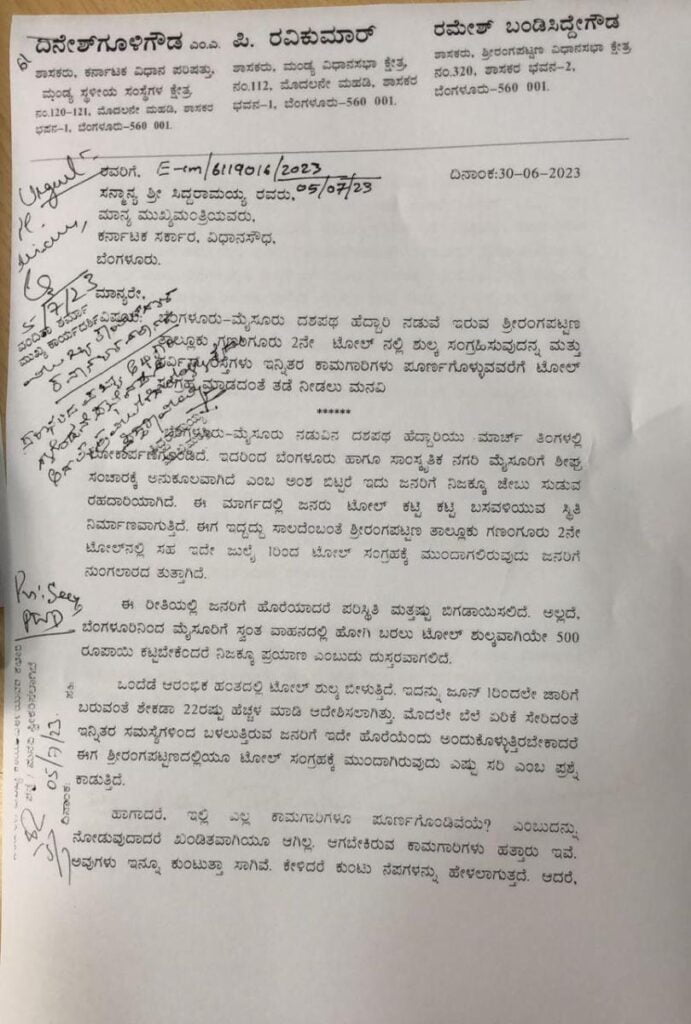 ದಿನೇಶ್‌ಗೂಳಿಗೌಡ ಎಂ.ಎ. ಪಿ. ರವಿಕುಮಾರ್ ರಮೇಶ್ ಬಂಡಿಸಿದ್ದೇಗೌಡ
ಶಾಸಕರು, ಕರ್ನಾಟಕ ವಿಧಾನ ಪರಿಷತ್ತು,
ಮಂಡ್ಯ ಸ್ಥಳೀಯ ಸಂಸ್ಥೆಗಳ ಕ್ಷೇತ್ರ
ನಂ.120-121, ಮೊದಲನೇ ಮಹಡಿ, ಶಾಸಕರ
ಭವನ-1, ಬೆಂಗಳೂರು-560 001.
ಶಾಸಕರು, ಮಂಡ್ಯ ವಿಧಾನಸಭಾ ಕ್ಷೇತ್ರ,
ನಂ.112, ಮೊದಲನೇ ಮಹಡಿ, ಶಾಸಕರ
ಭವನ-1, ಬೆಂಗಳೂರು-560 001.
ಶಾಸಕರು, ಶ್ರೀರಂಗಪಟ್ಟಣ ವಿಧಾನಸಭಾ ಕ್ಷೇತ್ರ
ನಂ.320, ಶಾಸಕರ ಭವನ-2,
ಬೆಂಗಳೂರು-560 001.
ರವರಿಗೆ, E-cm/6119016/2023 ದಿನಾಂಕ:30-06-2023
ಸನ್ಮಾನ್ಯ ಶ್ರೀ ಸಿದ್ದರಾಮಯ್ಯ ರವರು, 05/07/23
ಮಾನ್ಯ ಮುಖ್ಯಮಂತ್ರಿಯವರು,
ಕರ್ನಾಟಕ ಸರ್ಕಾರ, ವಿಧಾನಸೌಧ,
ಬೆಂಗಳೂರು.
Urgent
5/7/23
ಮಾನ್ಯರೇ,
ವಿಷಯ: ಬೆಂಗಳೂರು-ಮೈಸೂರು ದಶಪಥ ಹೆದ್ದಾರಿ ನಡುವೆ ಇರುವ ಶ್ರೀರಂಗಪಟ್ಟಣ
ತಾಲ್ಲೂಕು ಗಣಂಗೂರು 2ನೇ ಟೋಲ್ ನಲ್ಲಿ ಶುಲ್ಕ ಸಂಗ್ರಹಿಸುವುದನ್ನ ಮತ್ತು
ಸರ್ವಿಸ್ ರಸ್ತೆಗಳು ಇನ್ನಿತರ ಕಾಮಗಾರಿಗಳು ಪೂರ್ಣಗೊಳ್ಳುವವರೆಗೆ ಟೋಲ್
ಸಂಗ್ರಹ ಮಾಡದಂತೆ ತಡೆ ನೀಡಲು ಮನವಿ
******
ಬೆಂಗಳೂರು-ಮೈಸೂರು ನಡುವಿನ ದಶಪಥ ಹೆದ್ದಾರಿಯು ಮಾರ್ಚ್ ತಿಂಗಳಲ್ಲಿ
ಲೋಕಾರ್ಪಣೆಗೊಂಡಿದೆ. ಇದರಿಂದ ಬೆಂಗಳೂರು ಹಾಗೂ ಸಾಂಸ್ಕೃತಿಕ ನಗರಿ ಮೈಸೂರಿಗೆ ಶೀಘ್ರ
ಸಂಚಾರಕ್ಕೆ ಅನುಕೂಲವಾಗಿದೆ ಎಂಬ ಅಂಶ ಬಿಟ್ಟರೆ ಇದು ಜನರಿಗೆ ನಿಜಕ್ಕೂ ಜೇಬು ಸುಡುವ
ರಹದಾರಿಯಾಗಿದೆ. ಈ ಮಾರ್ಗದಲ್ಲಿ ಜನರು ಟೋಲ್ ಕಟ್ಟಿ ಕಟ್ಟಿ ಬಸವಳಿಯುವ ಸ್ಥಿತಿ
ನಿರ್ಮಾಣವಾಗುತ್ತಿದೆ. ಈಗ ಇದ್ದದ್ದು ಸಾಲದೆಂಬಂತೆ ಶ್ರೀರಂಗಪಟ್ಟಣ ತಾಲ್ಲೂಕು ಗಣಂಗೂರು 2ನೇ
ಟೋಲ್‌ನಲ್ಲಿ ಸಹ ಇದೇ ಜುಲೈ 1ರಿಂದ ಟೋಲ್ ಸಂಗ್ರಹಕ್ಕೆ ಮುಂದಾಗಲಿರುವುದು ಜನರಿಗೆ
ನುಂಗಲಾರದ ತುತ್ತಾಗಿದೆ.
PWD
ಈ ರೀತಿಯಲ್ಲಿ ಜನರಿಗೆ ಹೊರೆಯಾದರೆ ಪರಿಸ್ಥಿತಿ ಮತ್ತಷ್ಟು ಬಿಗಡಾಯಿಸಲಿದೆ. ಅಲ್ಲದೆ,
ಬೆಂಗಳೂರಿನಿಂದ ಮೈಸೂರಿಗೆ ಸ್ವಂತ ವಾಹನದಲ್ಲಿ ಹೋಗಿ ಬರಲು ಟೋಲ್ ಶುಲ್ಕವಾಗಿಯೇ 500
ರೂಪಾಯಿ ಕಟ್ಟಬೇಕೆಂದರೆ ನಿಜಕ್ಕೂ ಪ್ರಯಾಣ ಎಂಬುದು ದುಸ್ತರವಾಗಲಿದೆ.
ಒಂದೆಡೆ ಆರಂಭಿಕ ಹಂತದಲ್ಲಿ ಟೋಲ್ ಶುಲ್ಕ ಬೀಳುತ್ತಿದೆ. ಇದನ್ನು ಜೂನ್ 1ರಿಂದಲೇ ಜಾರಿಗೆ
ಬರುವಂತೆ ಶೇಕಡಾ 22ರಷ್ಟು ಹೆಚ್ಚಳ ಮಾಡಿ ಆದೇಶಿಸಲಾಗಿತ್ತು. ಮೊದಲೇ ಬೆಲೆ ಏರಿಕೆ ಸೇರಿದಂತೆ
ಇನ್ನಿತರ ಸಮಸ್ಯೆಗಳಿಂದ ಬಳಲುತ್ತಿರುವ ಜನರಿಗೆ ಇದೇ ಹೊರೆಯೆಂದು ಅಂದುಕೊಳ್ಳುತ್ತಿರಬೇಕಾದರೆ
ಈಗ ಶ್ರೀರಂಗಪಟ್ಟಣದಲ್ಲಿಯೂ ಟೋಲ್ ಸಂಗ್ರಹಕ್ಕೆ ಮುಂದಾಗಿರುವುದು ಎಷ್ಟು ಸರಿ ಎಂಬ ಪ್ರಶ್ನೆ
ಕಾಡುತ್ತಿದೆ.
ದಿನಾಂಕ: 05/7/23
ಹಾಗಾದರೆ, ಇಲ್ಲಿ ಎಲ್ಲ ಕಾಮಗಾರಿಗಳೂ ಪೂರ್ಣಗೊಂಡಿವೆಯೆ? ಎಂಬುದನ್ನು
ನೋಡುವುದಾದರೆ ಖಂಡಿತವಾಗಿಯೂ ಆಗಿಲ್ಲ. ಆಗಬೇಕಿರುವ ಕಾಮಗಾರಿಗಳು ಹತ್ತಾರು ಇವೆ.
ಅವುಗಳು ಇನ್ನೂ ಕುಂಟುತ್ತಾ ಸಾಗಿವೆ. ಕೇಳಿದರೆ ಕುಂಟು ನೆಪಗಳನ್ನು ಹೇಳಲಾಗುತ್ತದೆ. ಆದರೆ,